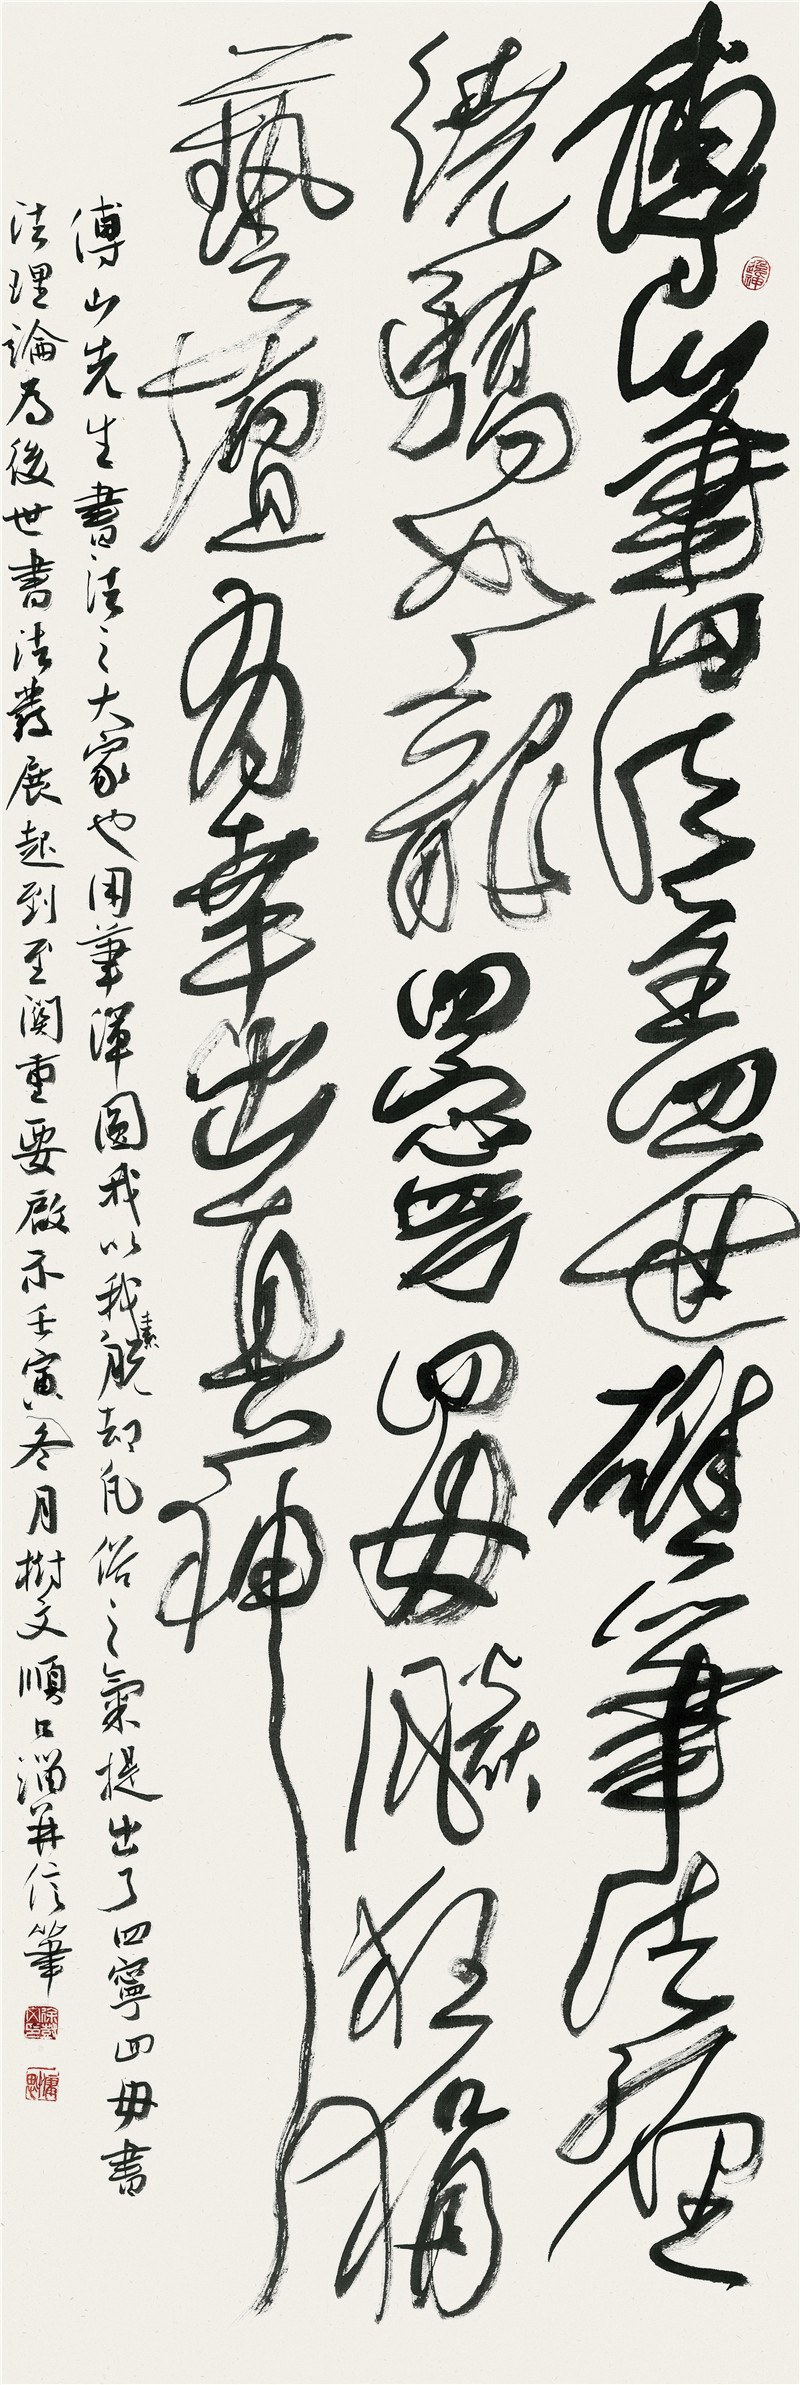 傅山書法蓋世雄筆法纏
繞驕如龍四寧四毋飈狂狷
藝壇有幸出真神
傅山先生書法之大家也用筆渾圓我以我素脫却凡俗之氣提出了四寧四毋書
法理論為後世書法發展起到至關重要啟示壬寅冬月樹文順口溜并信筆